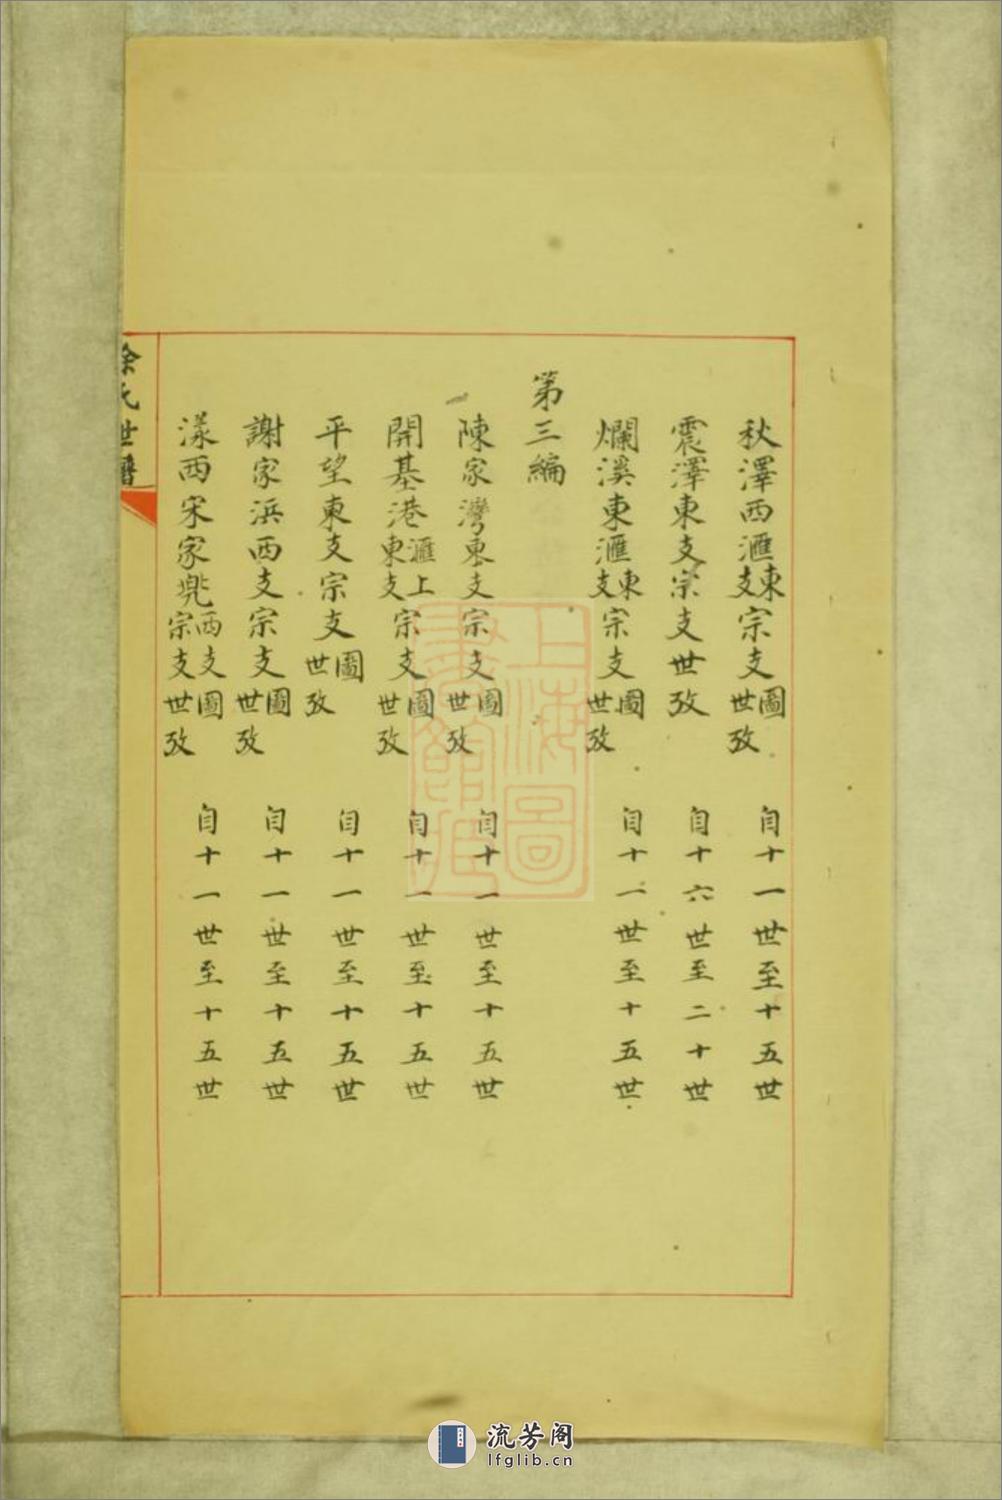 秋澤西滙東支宗支圖世攷 自十一世至十五世
震澤東支宗支世攷 自十六世至二十世
爛溪東滙東支宗支圖世攷 自十一世至十五世
第三編
陳家灣東支宗支圖世攷 自十一世至十五世
開基港滙上東支宗支圖世攷 自十一世至十五世
平望東支宗支圖世攷 自十一世至十五世
謝家浜西支宗支圖世攷 自十一世至十五世
漾西宋家兠西支宗支圖世攷 自十一世至十五世
氏世譜
上海圖書館藏
流芳阁
lfglib.cn